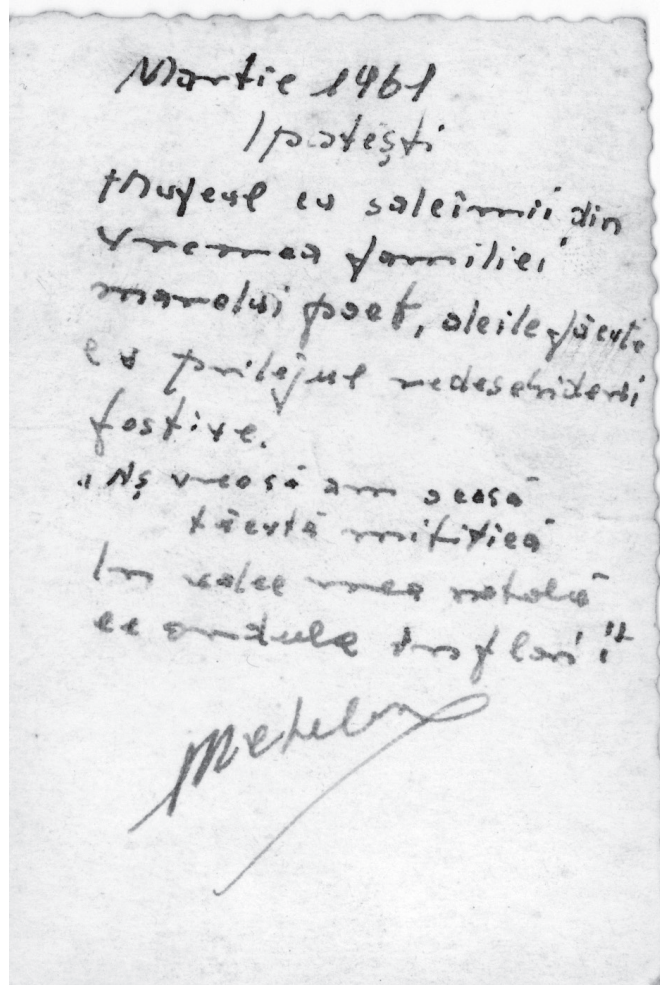 Martie 1961
Ipotești
Muzeul cu salcîmii din
vremea familiei
marelui poet, aleile făcute
cu prilejul redeschiderii
festive.
„Aș vrea să am o casă
tăcută mititică
În valea mea natală
ce undula în flori!"